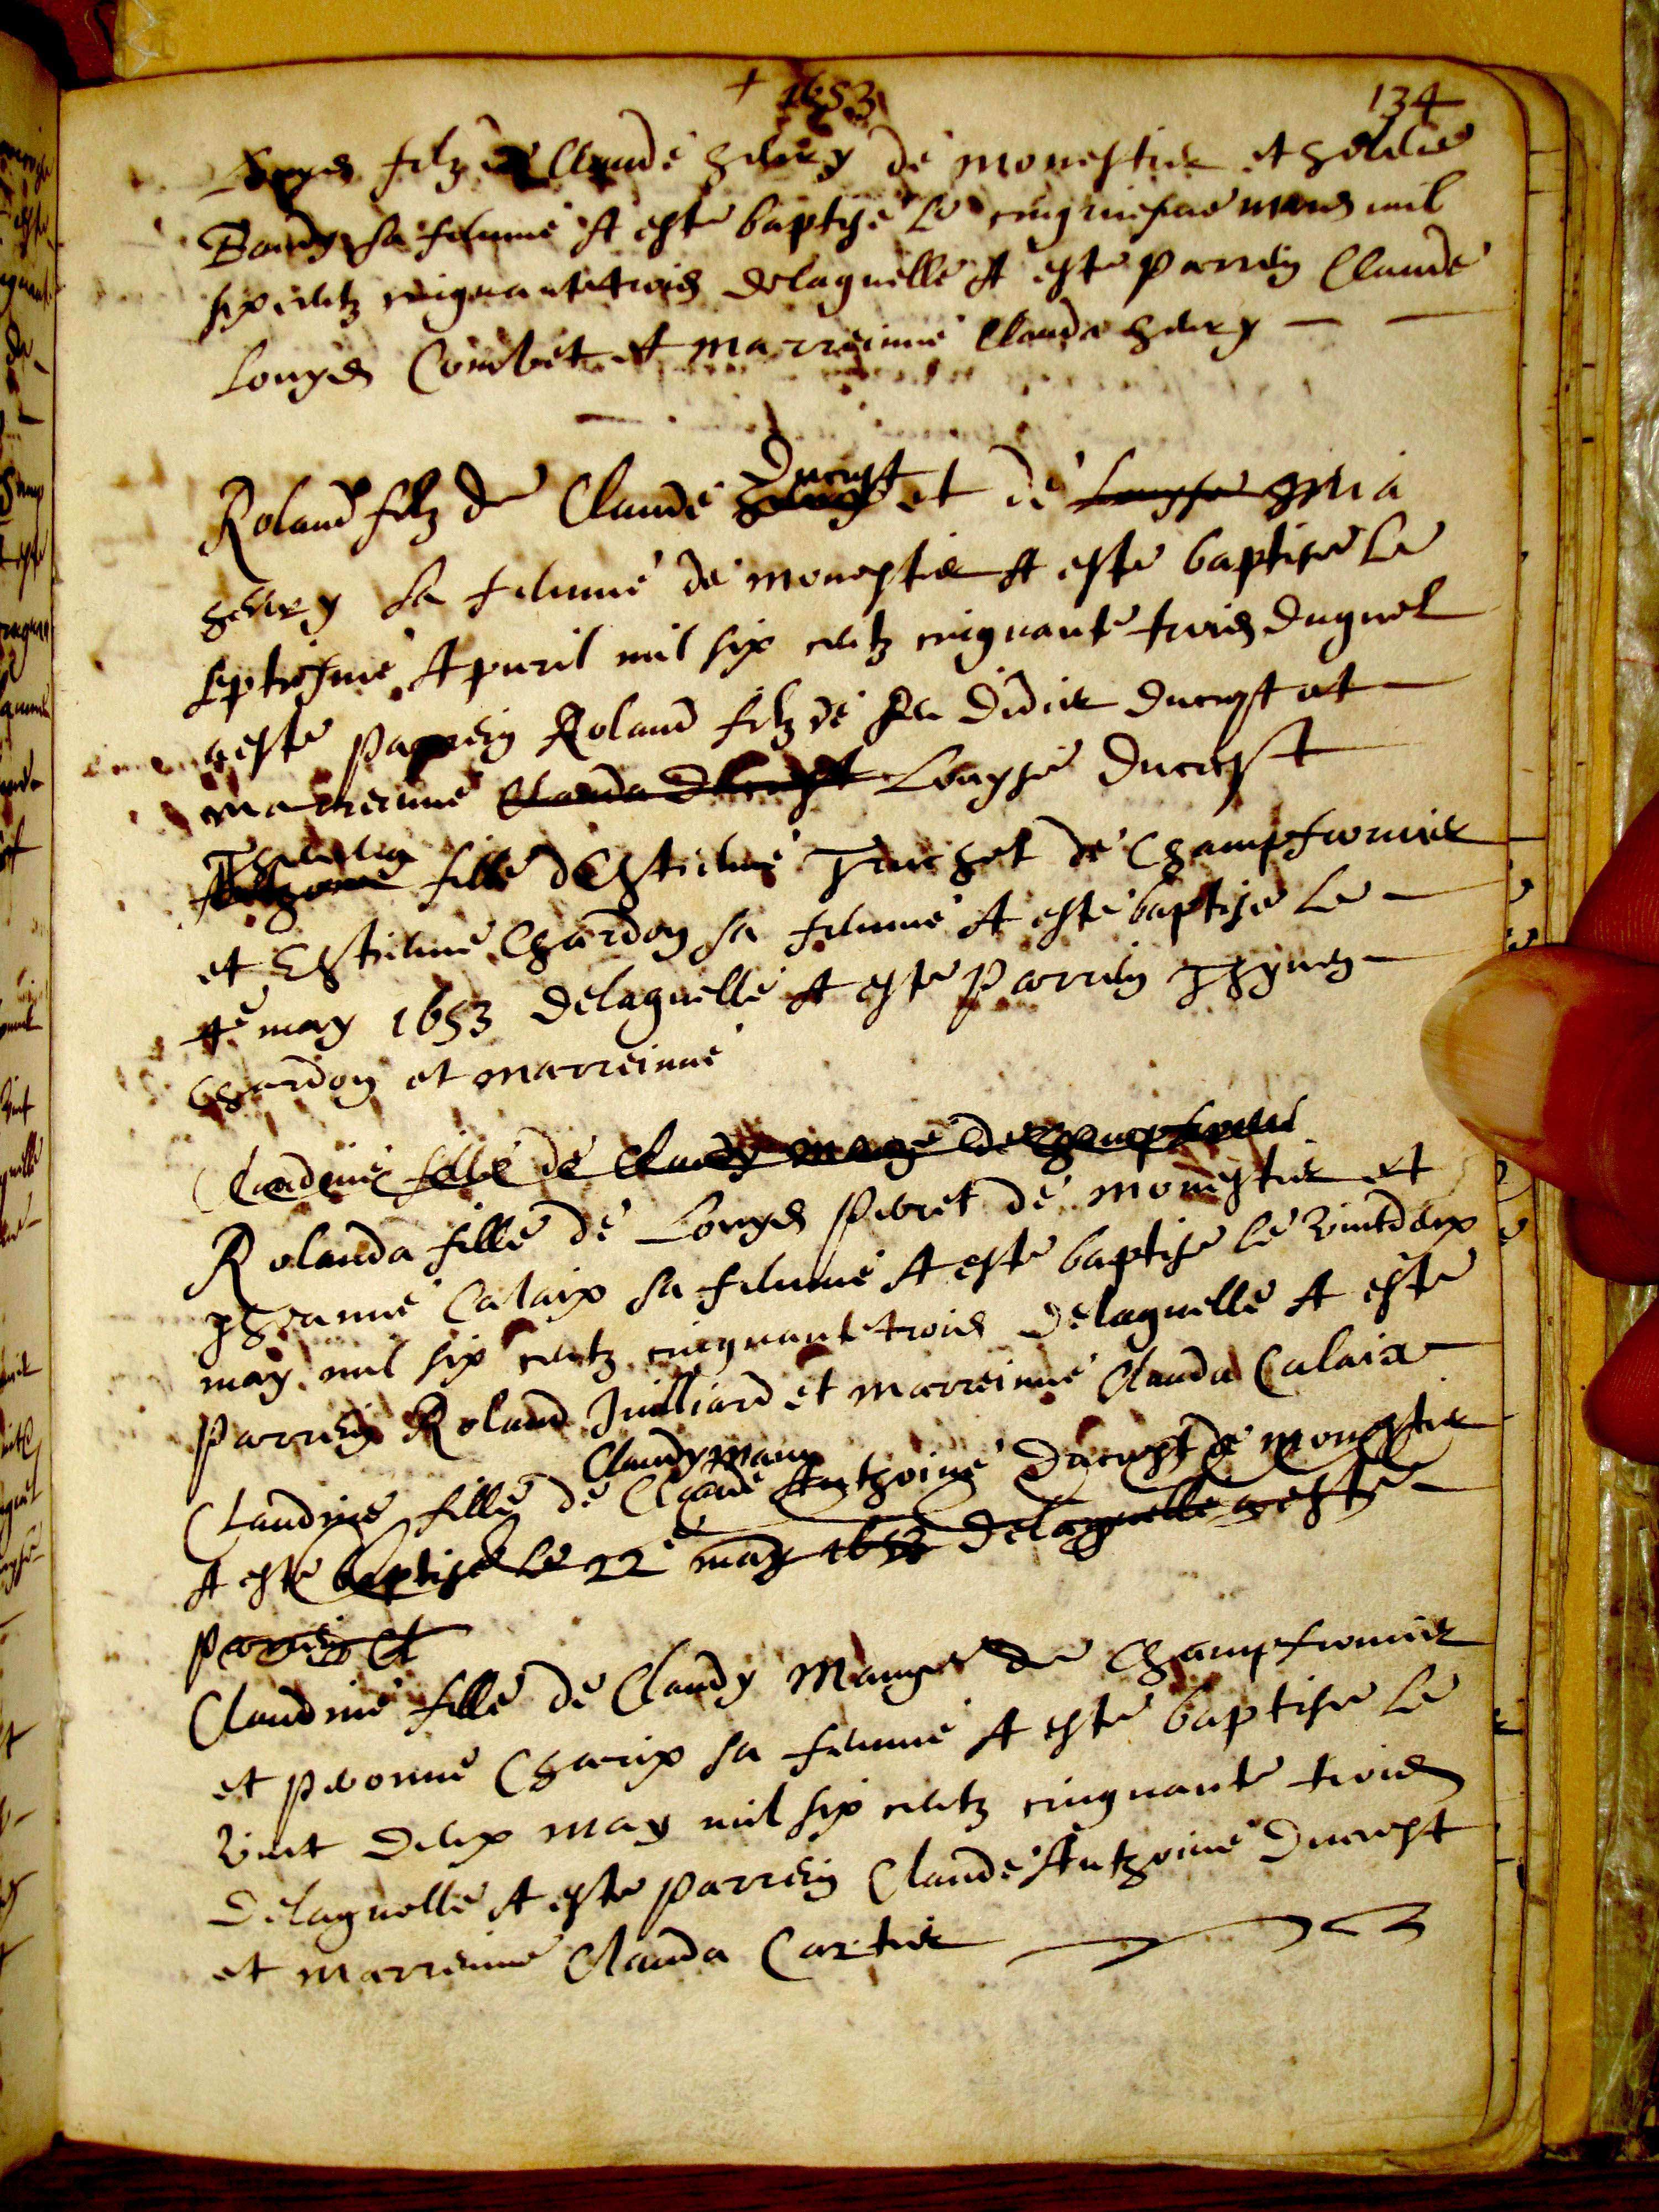 + 1653
134
Louys filz de Claude henry de monestier et
Bandy sa femme A esté baptisé le cinquiesme mars mil
six centz cinquantetrois delaquelle A esté parrein Claude
Louys Combet et marreinne Clauda henry
Ducrest
Roland filz de Claude henry et de Louyse
henry sa femme de monestier A esté baptisé le
septiesme Apuril mil six centz cinquante trois duquel
a esté parrein Roland filz de feu Didier Ducrest et
marreinne Clauda Ducrest Louyse Ducrest
fille d'Estienne Truchet de Champfromier
et Estienne Chardon sa femme A esté baptisé le
4e may 1653 delaquelle A esté parrein Thyven
Chardon et marreinne
Claudine fille de Claudy mauge de Champfromier
Rolanda fille de Louys Peuret de monestier et
Jheanne Calaix sa femme A esté baptisé le vintdeux
may mil six centz cinquantetrois delaquelle A esté
parrein Roland Juilliard et marreinne Clauda Calaix
Claudy Maug
Claudine fille de Claude Anthoine Ducrest de monestier
A esté baptisé le 22e may 1653 delaquelle a esté
parrein et
Claudine fille de Claudy Mauge de Champfromier
et Peronne Charix sa femme A esté baptisé le
vint deux may mil six centz cinquante trois
delaquelle A esté parrein Claude Anthoine Ducrest
et marreinne Clauda Cartier